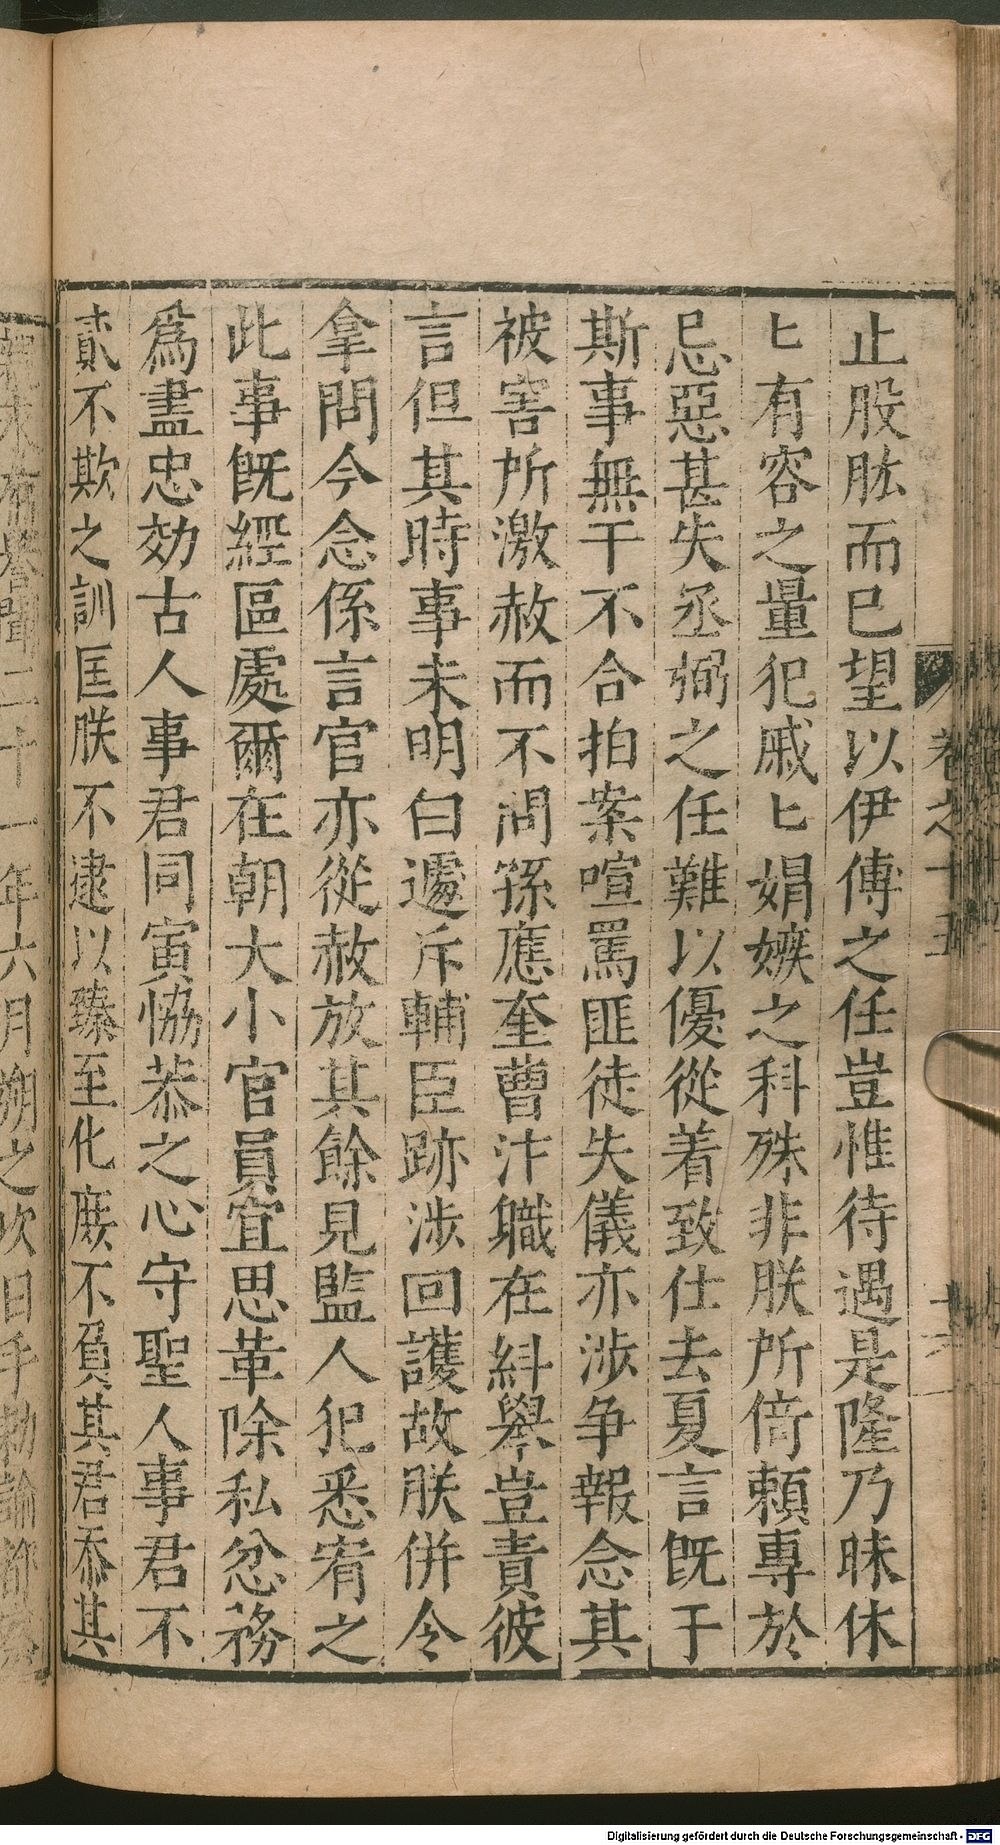 止股肱而已望以伊傅之任豈惟待遇是隆乃昧休
匕有容之量犯戚匕娟嫉之科殊非朕所倚賴專於
忌惡甚失丞弼之任難以優從着致仕去夏言旣于
斯事無干不合拍案喧罵匪徒失儀亦涉争報念其
被害所激赦而不問孫應奎曹汴職在糾舉豈責彼
言但其時事未明白遽斥輔臣跡涉回護故朕併令
拿問今念係言官亦從赦放其餘見監人犯悉宥之
此事旣經區處爾在朝大小官員宜思革除私忿務
爲盡忠効古人事君同寅恊恭之心守聖人事君不
貳不欺之訓匡朕不逮以臻至化庶不負其君忝其
卷之十五
十六
二十一年六月朔之次日手勑諭
Digitalisierung gefördert durch die Deutsche Forschungsgemeinschaft - DFG